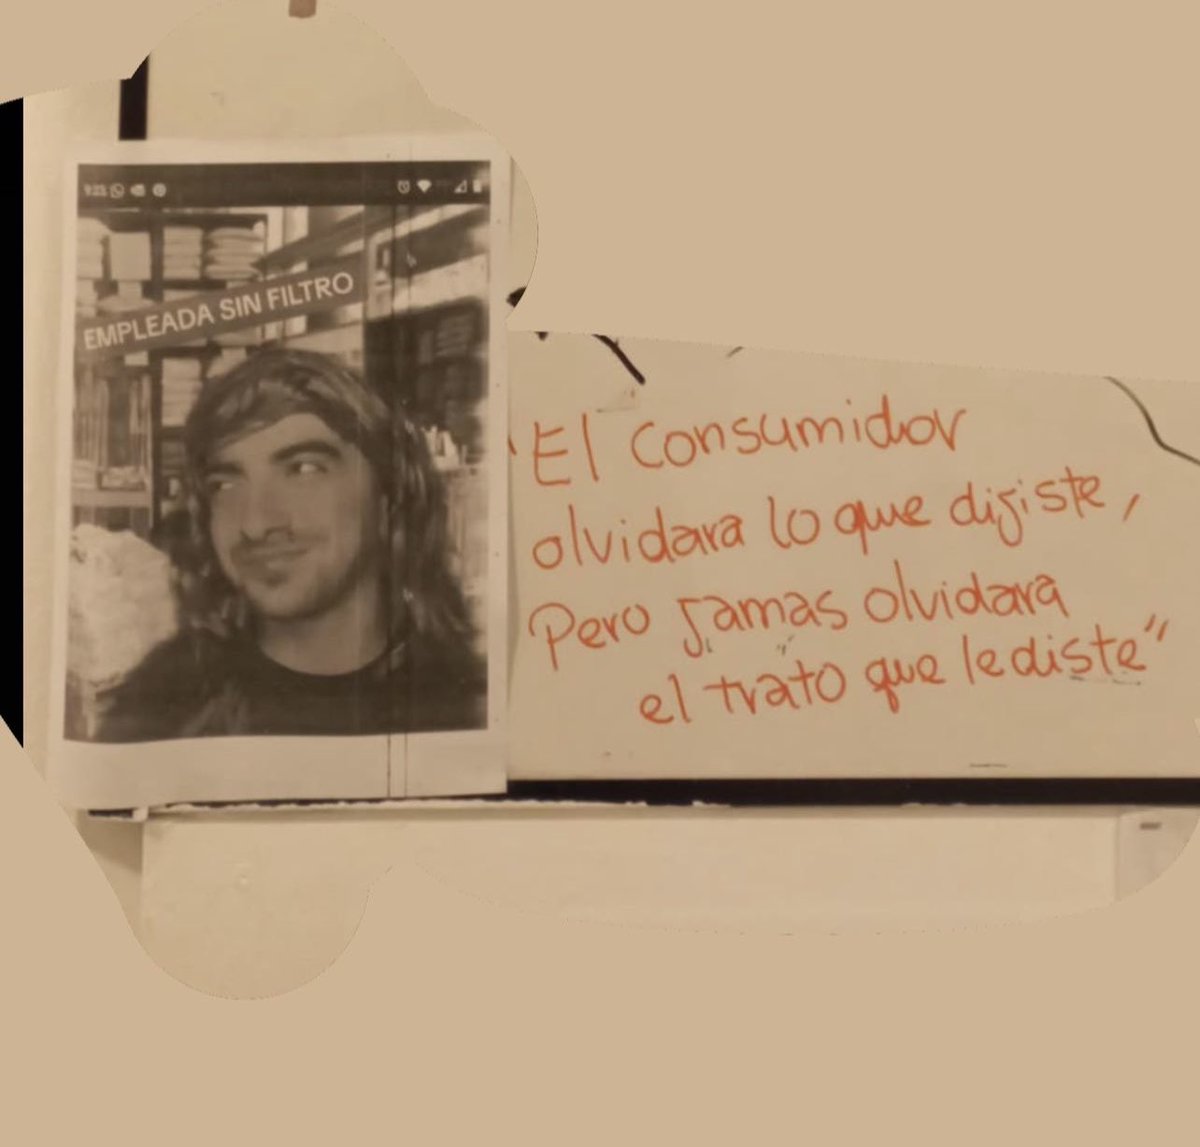 9:25
EMPLEADA SIN FILTRO
"El consumidor
olvidara lo que dijiste,
Pero jamas olvidara
el trato que le diste"